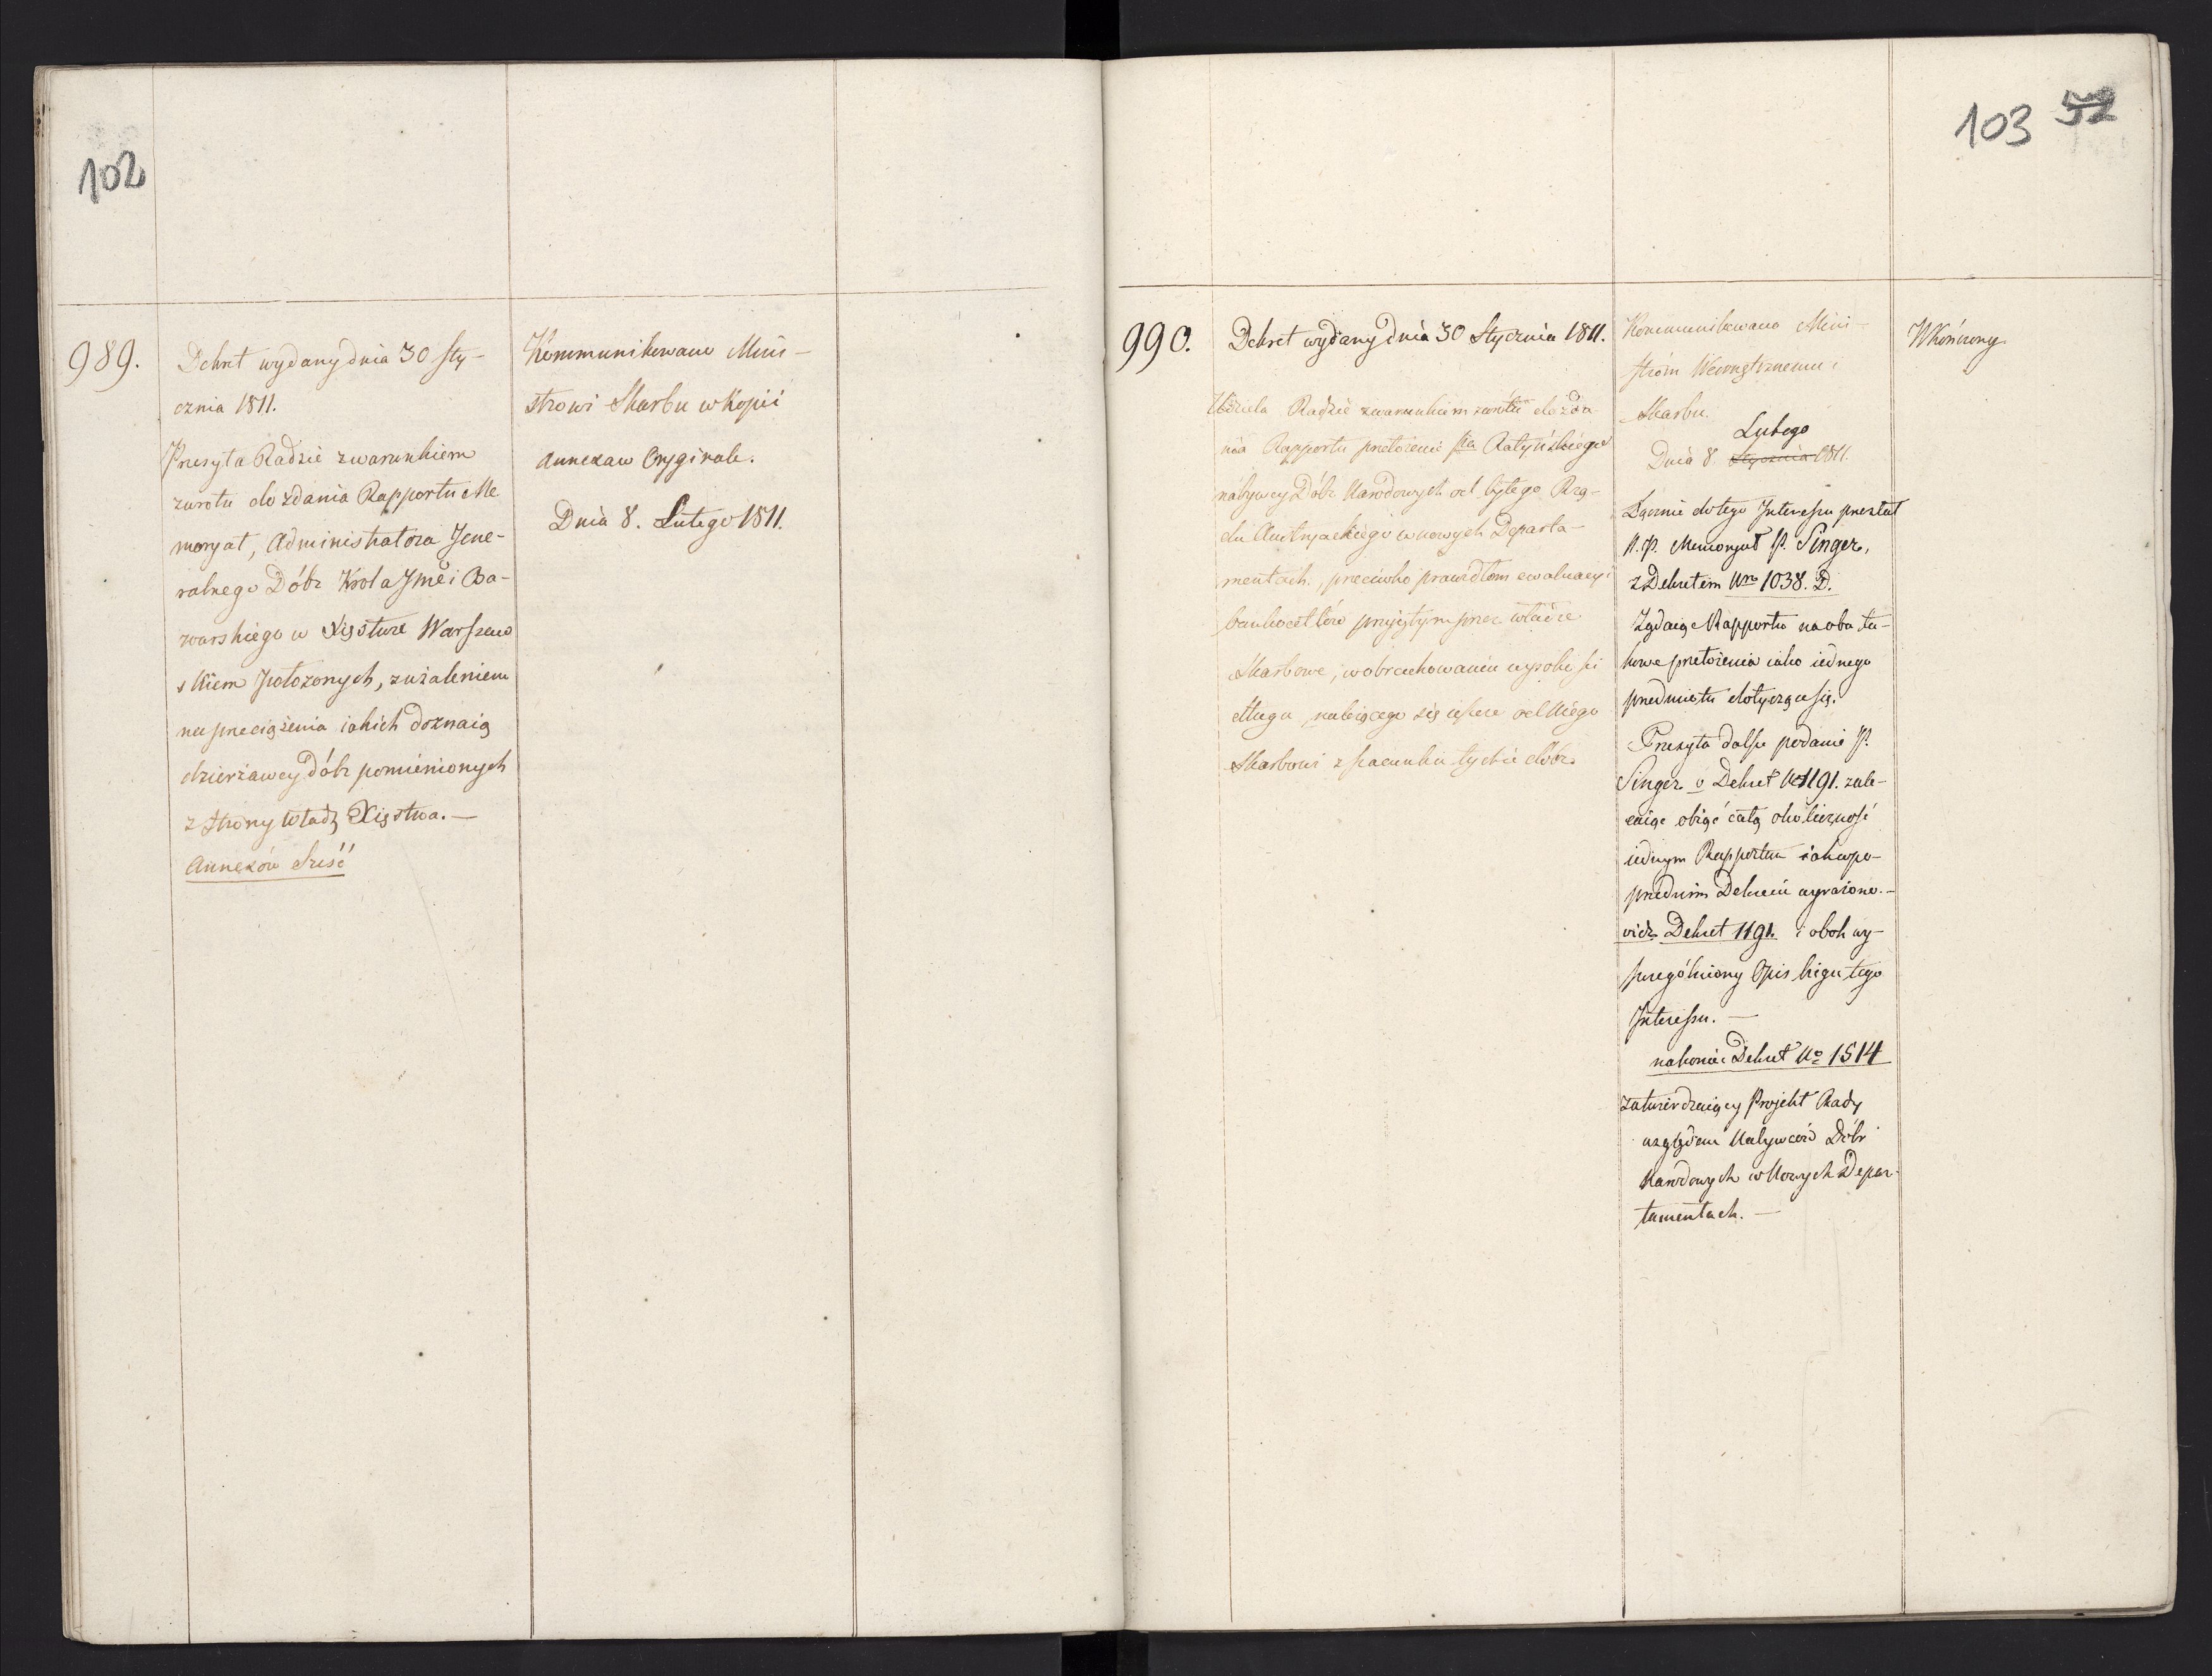 102
989.
Dekret wydany dnia 30 Sty-
cznia 1811.
Przesyła Radzie z warunkiem
zwrotu do zdania Rapportu Me
moryał, Administratora Jene-
ralnego Dóbr Króla Jmći Ba-
warskiego w Xięstwie Warszaw
skiem położonych, z użaleniem
na przeciążenia iakich doznaią
dzierżawcy Dóbr pomienionych
z strony Władz Xięstwa. —
Annexów sześć
Kommunikowano Mini-
strowi Skarbu w Kopii
annexa w Oryginale.
Dnia 8. Lutego 1811.
103 52
990.
Dekret wydany dnia 30 Stycznia 1811.
Udziela Radzie z warunkiem zwrotu do zda-
nia Rapportu przełożenie Ratyńskiego
nabywcy Dóbr Narodowych od byłego Rzą-
du Austryackiego w nowych Departa-
mentach, przeciwko prawidłom ewaluacyi
bankocetlów przyiętym przez władze
Skarbowe, w obrachowaniu wysokości
długu, należącego się ieszcze od niego
Skarbowi z szacunku tychże dóbr.
Kommunikowano Mini-
stróm Wewnętrznemu i
Skarbu.
Lutego
Dnia 8 Stycznia 1811.
Łącznie do tego Interessu przesłał
N. P. Memoryał P. Singer,
z Dekretem Nro 1038. D.
Żądaiąc Rapportu na oba ta-
kowe przełożenia iako iednego
przedmiotu dotyczące się.
Przesyła dalsze podanie P.
Singer v Dekret No 1191. zale-
caiąc obiąć całą okoliczność
iednym Rapportem iak w po-
przednim Dekrecie wyrażono. —
vide Dekret 1191. i obok wy-
szczególniony Opis biegu tego
Interessu. —
nakoniec Dekret No 1514
zatwierdzaiący Projekt Rady
względem Nabywców Dóbr
Narodowych w Nowych Depar-
tamentach. —
Wkończony